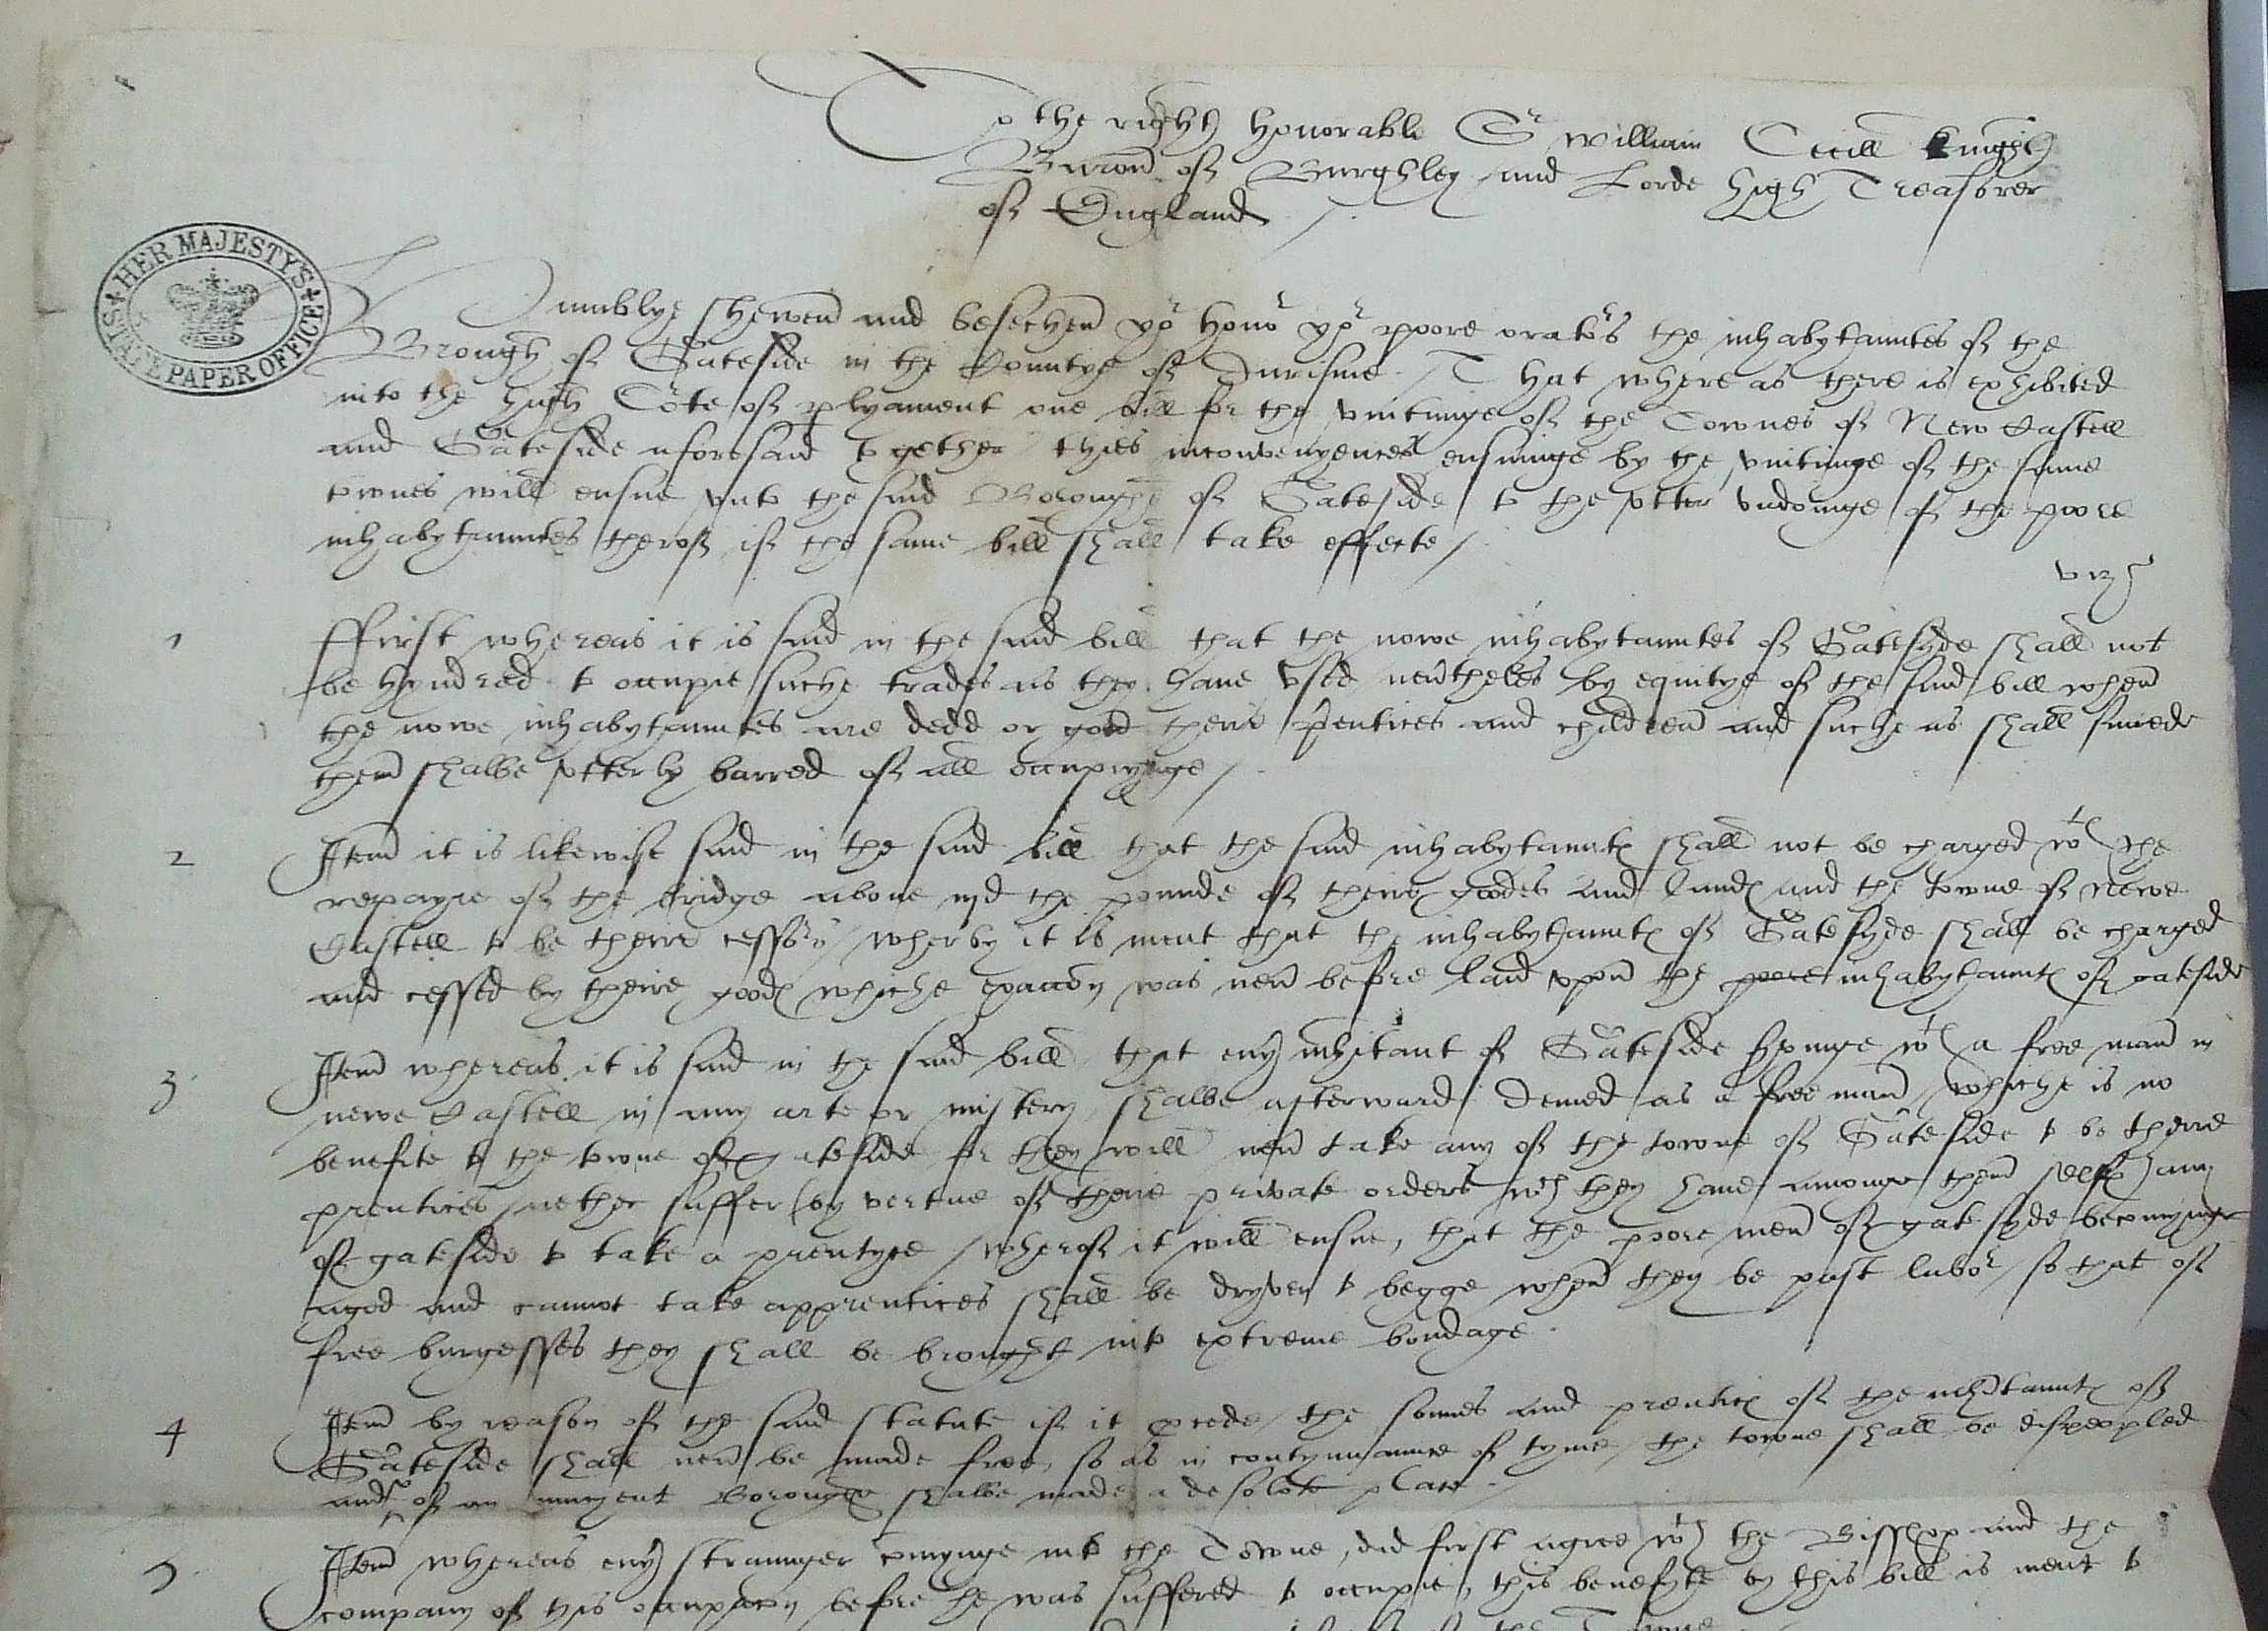 To the right honorable Sr William Cecill knight
Baron of Burghley and Lorde high Treasorer
of England /.
HER MAJESTY'S STATE PAPER OFFICE
Humblye shewen and besechen yor honor yor poore orators the inhabytauntes of the
Brough of Gateside in the Countye of Duresme. / That where as there is exhibited
into the high Cote of plyament one bill for the vnitinge of the Townes of New Castell
and Gateside aforesaid together thies inconvenyences ensuinge by the vnitinge of the same
townes will ensue vnto the said Boroughe of Gateside to the vtter vndoinge of the poore
inhabytauntes therof if the same bill shall take effecte /.
viz
1 ffirst whereas it is said in the said bill that the nowe inhabytauntes of Gatesyde shall not
be hyndred to occupie suche trades as they haue vsed neutheles by equitye of the said bill when
the nowe inhabytauntes are dedd or gon theire prentices and children and suche as shall succede
them shalbe vtterly barred of all occupyinge /.
2 Item it is likewise said in the said bill that the said inhabytauntes shall not be charged wth the
repayre of the bridge aboue ijd the pounde of theire goodes and landes and the towne of Newe
Castell to be theire cessors / wherby it is ment that the inhabytauntes of Gatesyde shall be charged
and cessed by theire goodes whiche exaccon was neu before laid vpon the poore inhabytauntes of gateside
3 Item whereas it is said in the said bill that euy inhitant of Gateside servinge wth a free man in
newe Castell in any arte or mistery shalbe afterward demed as a free man / whiche is no
benefite to the towne of gateside for they will neu take any of the towne of Gateside to be theire
prentices / nether suffer by vertue of theire private orders wch they haue amonge them selfes any
of gateside to take a prentyce / wherof it will ensue, that the poore men of gatesyde becomynge
aged and cannot take apprentices shall be dryven to begge when they be past labor / so that of
free burgesses they shall be brought into extreme bondage.
4 Item by reason of the said statute if it procede / the sonnes and prentices of the inhitauntes of
Gateside shall neu be made free, so as in contynuaunce of tyme / the towne shall be dispeopled
and of an auncyent Boroughe shalbe made a desolate place.
5 Item whereas euy straunger comynge into the Towne, did first agree wth the Bisshop and the
company of his occupacon before he was suffered to occupie, this benefyte by this bill is ment to
of the Towne